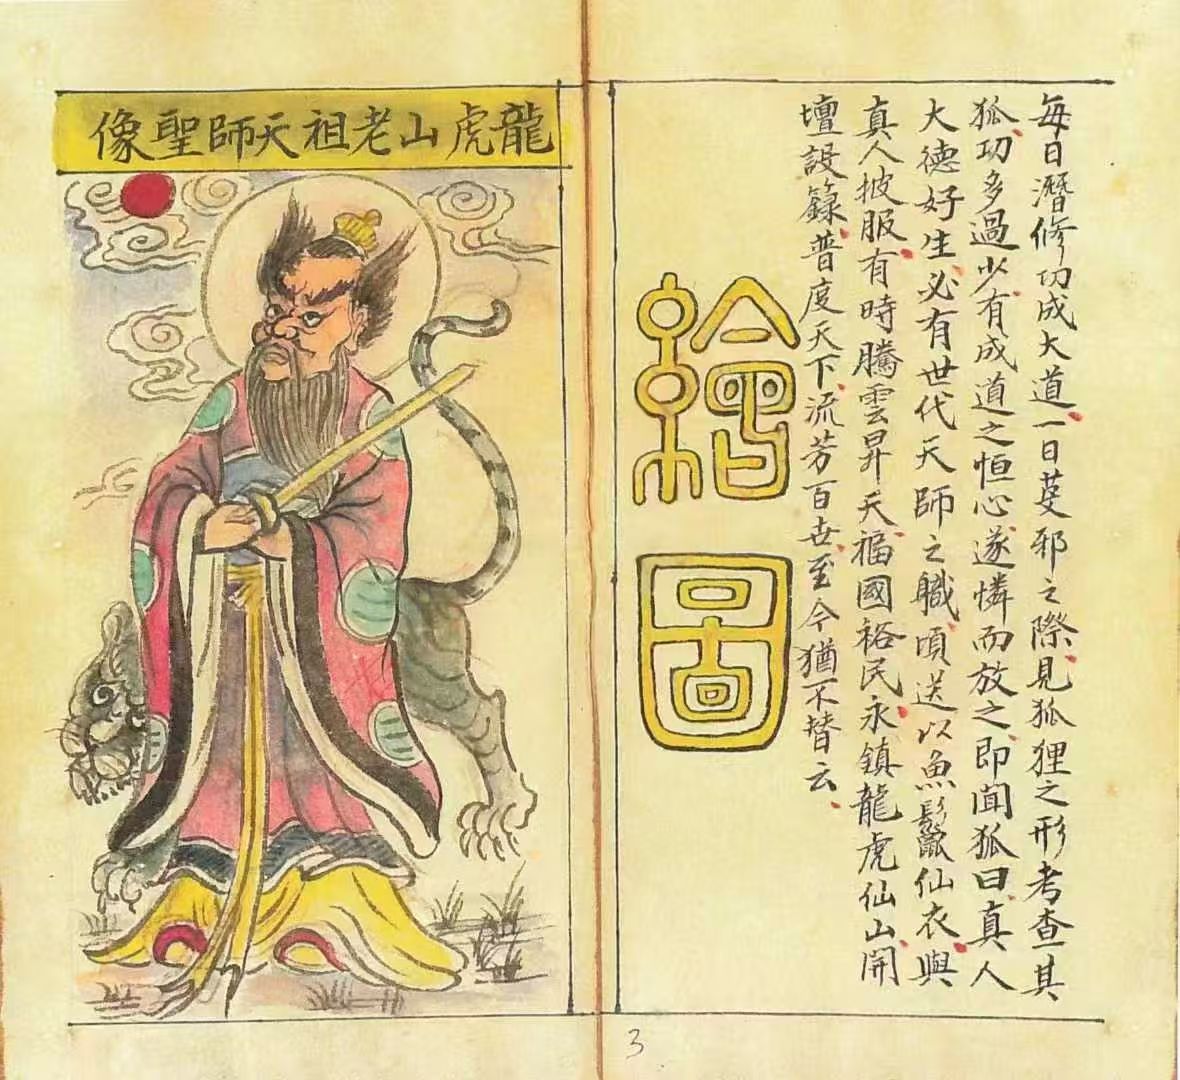 每日潛修功成大道、一日芟邪之際、見狐狸之形考查其
狐、功多過少、有成道之恒心、遂憐而放之、即聞狐曰、真人
大德好生、必有世代天師之職、頃送以魚鬣仙衣、與
真人披服、有時騰雲昇天、福國裕民、永鎮龍虎仙山、開
壇設籙、普度天下、流芳百世、至今猶不替云、
繪圖
龍虎山老祖天師聖像
3